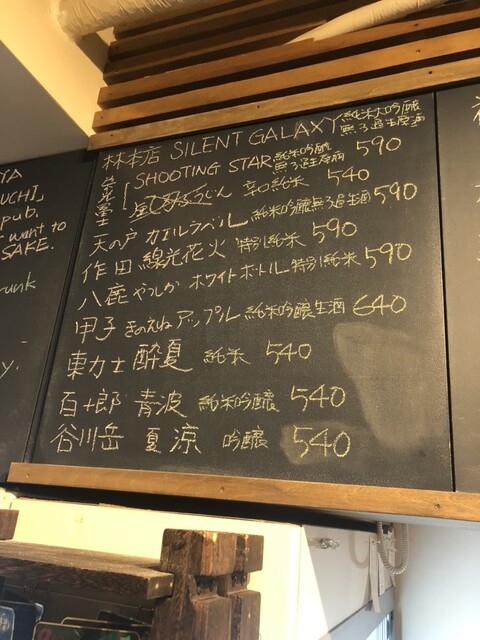 TA
UCHI,
pub.
want to
SAKE.
unk
y.
林本店 SILENT GALAXY 純米大吟醸 無ろ過生原酒
SHOOTING STAR 純米吟醸 無ろ過生原酒 590
どん 辛口純米 540
天の戸 カエルラベル 純米吟醸無ろ過生酒 590
作田 線光花火 特別純米 590
八鹿 やつしか ホワイトボトル 特別純米 590
甲子 きのえね アップル 純米吟醸生酒 640
東力士 酔夏 純米 540
百十郎 青波 純米吟醸 540
谷川岳 夏涼 吟醸 540